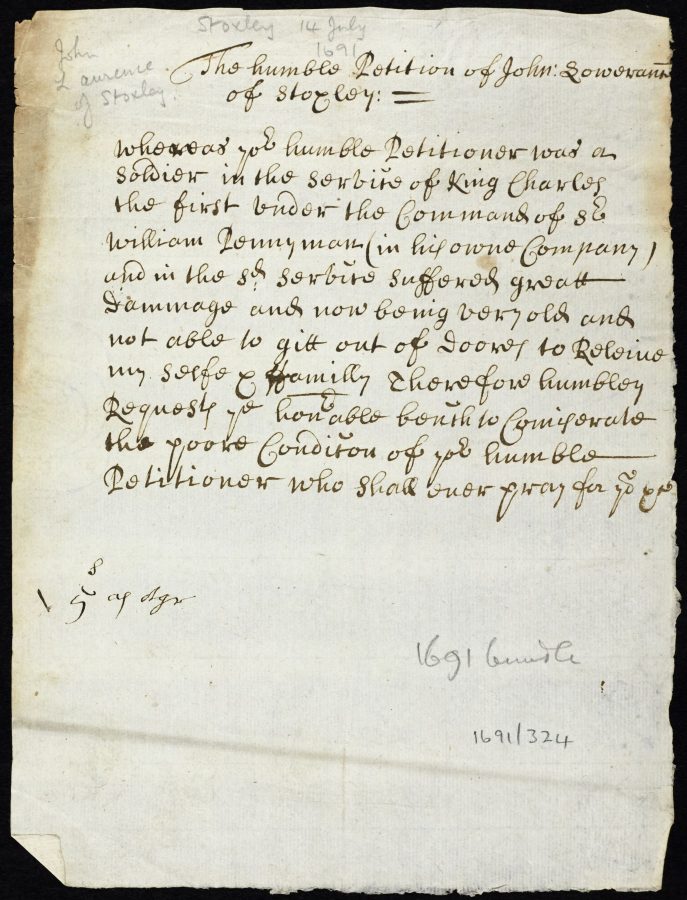 Stoxley 14 July
1691
John
Laurence
of Stoxley.
The humble Petition of John: Lowerann
of Stoxley: =
whereas yor humble Petitioner was a
Soldier in the Service of King Charles
the first Vnder the Command of Sr
William Pennyman (in his owne Company)
and in the sd Service Suffered greatt
Dammage and now being very old and
not able to gitt out of doores to Releive
my selfe & ffamilly Therefore humbley
Requests ye honrdable bench to Comiserate
the poore Condicon of yor humble
Petitioner who Shall ever pray for yo &c
5s
1691 bundle
1691/324